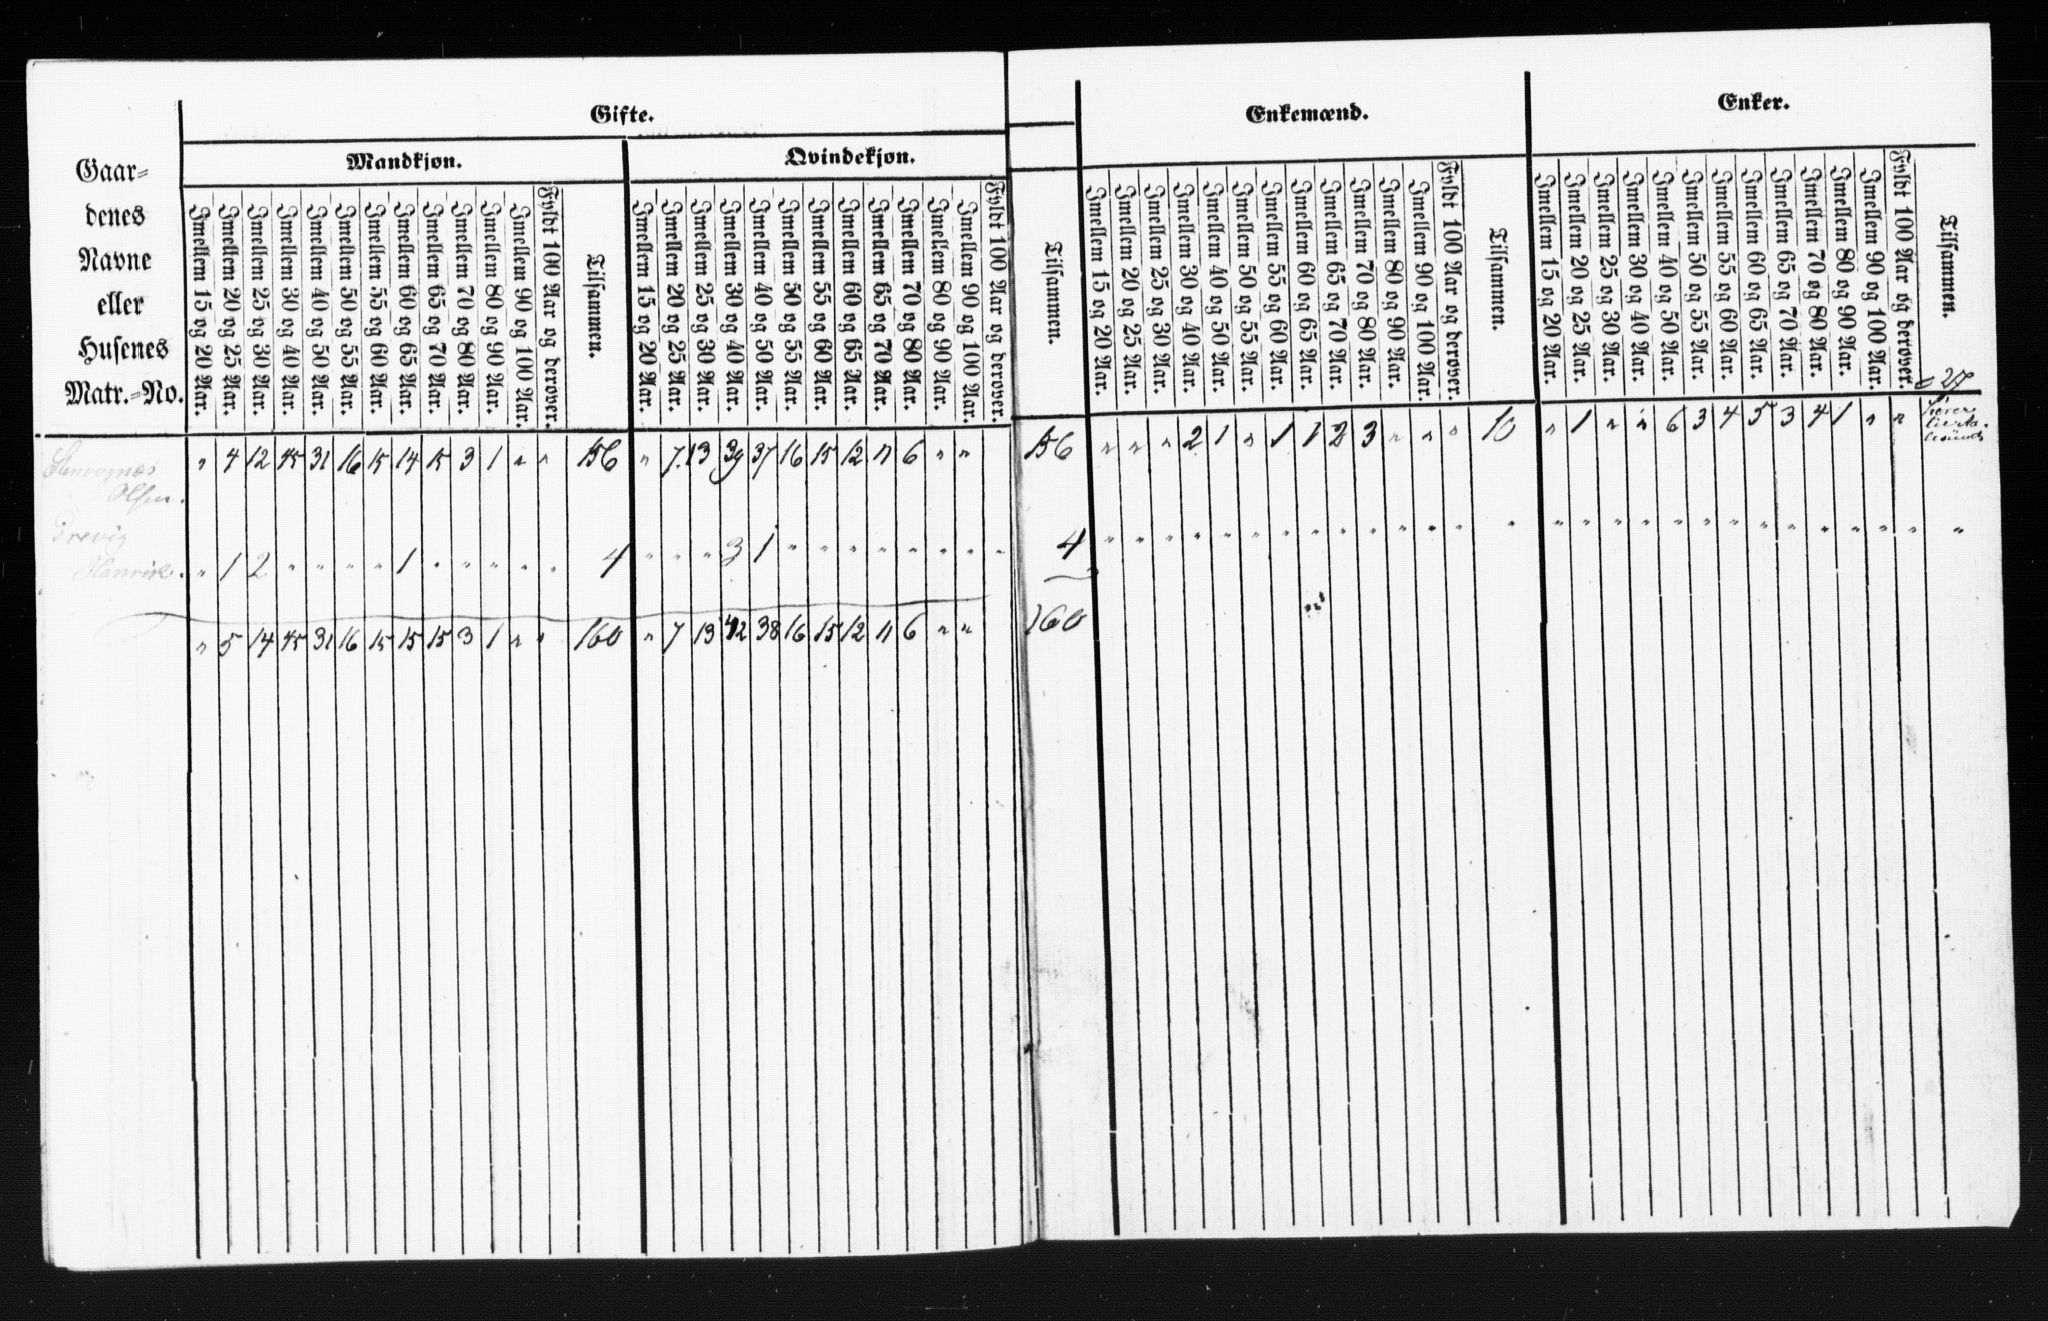 Gifte.
Enkemænd.
Enker.
Mandkjøn.
Qvindekjøn.
Gaar-
denes
Navne
eller
Husenes
Matr.-No.
Imellem 15 og 20 Aar.
Imellem 20 og 25 Aar.
Imellem 25 og 30 Aar.
Imellem 30 og 40 Aar.
Imellem 40 og 50 Aar.
Imellem 50 og 55 Aar.
Imellem 55 og 60 Aar.
Imellem 60 og 65 Aar.
Imellem 65 og 70 Aar.
Imellem 70 og 80 Aar.
Imellem 80 og 90 Aar.
Imellem 90 og 100 Aar.
Fyldt 100 Aar og derover.
Tilsammen.
Imellem 15 og 20 Aar.
Imellem 20 og 25 Aar.
Imellem 25 og 30 Aar.
Imellem 30 og 40 Aar.
Imellem 40 og 50 Aar.
Imellem 50 og 55 Aar.
Imellem 55 og 60 Aar.
Imellem 60 og 65 Aar.
Imellem 65 og 70 Aar.
Imellem 70 og 80 Aar.
Imellem 80 og 90 Aar.
Imellem 90 og 100 Aar.
Fyldt 100 Aar og derover.
Tilsammen.
Imellem 15 og 20 Aar.
Imellem 20 og 25 Aar.
Imellem 25 og 30 Aar.
Imellem 30 og 40 Aar.
Imellem 40 og 50 Aar.
Imellem 50 og 55 Aar.
Imellem 55 og 60 Aar.
Imellem 60 og 65 Aar.
Imellem 65 og 70 Aar.
Imellem 70 og 80 Aar.
Imellem 80 og 90 Aar.
Imellem 90 og 100 Aar.
Fyldt 100 Aar og derover.
Tilsammen.
Imellem 15 og 20 Aar.
Imellem 20 og 25 Aar.
Imellem 25 og 30 Aar.
Imellem 30 og 40 Aar.
Imellem 40 og 50 Aar.
Imellem 50 og 55 Aar.
Imellem 55 og 60 Aar.
Imellem 60 og 65 Aar.
Imellem 65 og 70 Aar.
Imellem 70 og 80 Aar.
Imellem 80 og 90 Aar.
Imellem 90 og 100 Aar.
Fyldt 100 Aar og derover.
Tilsammen.
27
" 4 12 45 31 16 15 14 15 3 1 " " 156 " 7 13 39 37 16 15 12 11 6 " " 156 " " " 2 1 " 1 1 2 3 " " " 10 " 1 " " 6 3 4 5 3 4 1 " "
Olsen.
Brevig
Henrik. " 1 2 " " " " 1 " " " " " 4 " " " 3 1 " " " " " " " " 4 " " " " " " " " " " " " " " " " " " " " " " " " " " " "
" 5 14 45 31 16 15 15 15 3 1 " " 160 " 7 13 42 38 16 15 12 11 6 " " 160